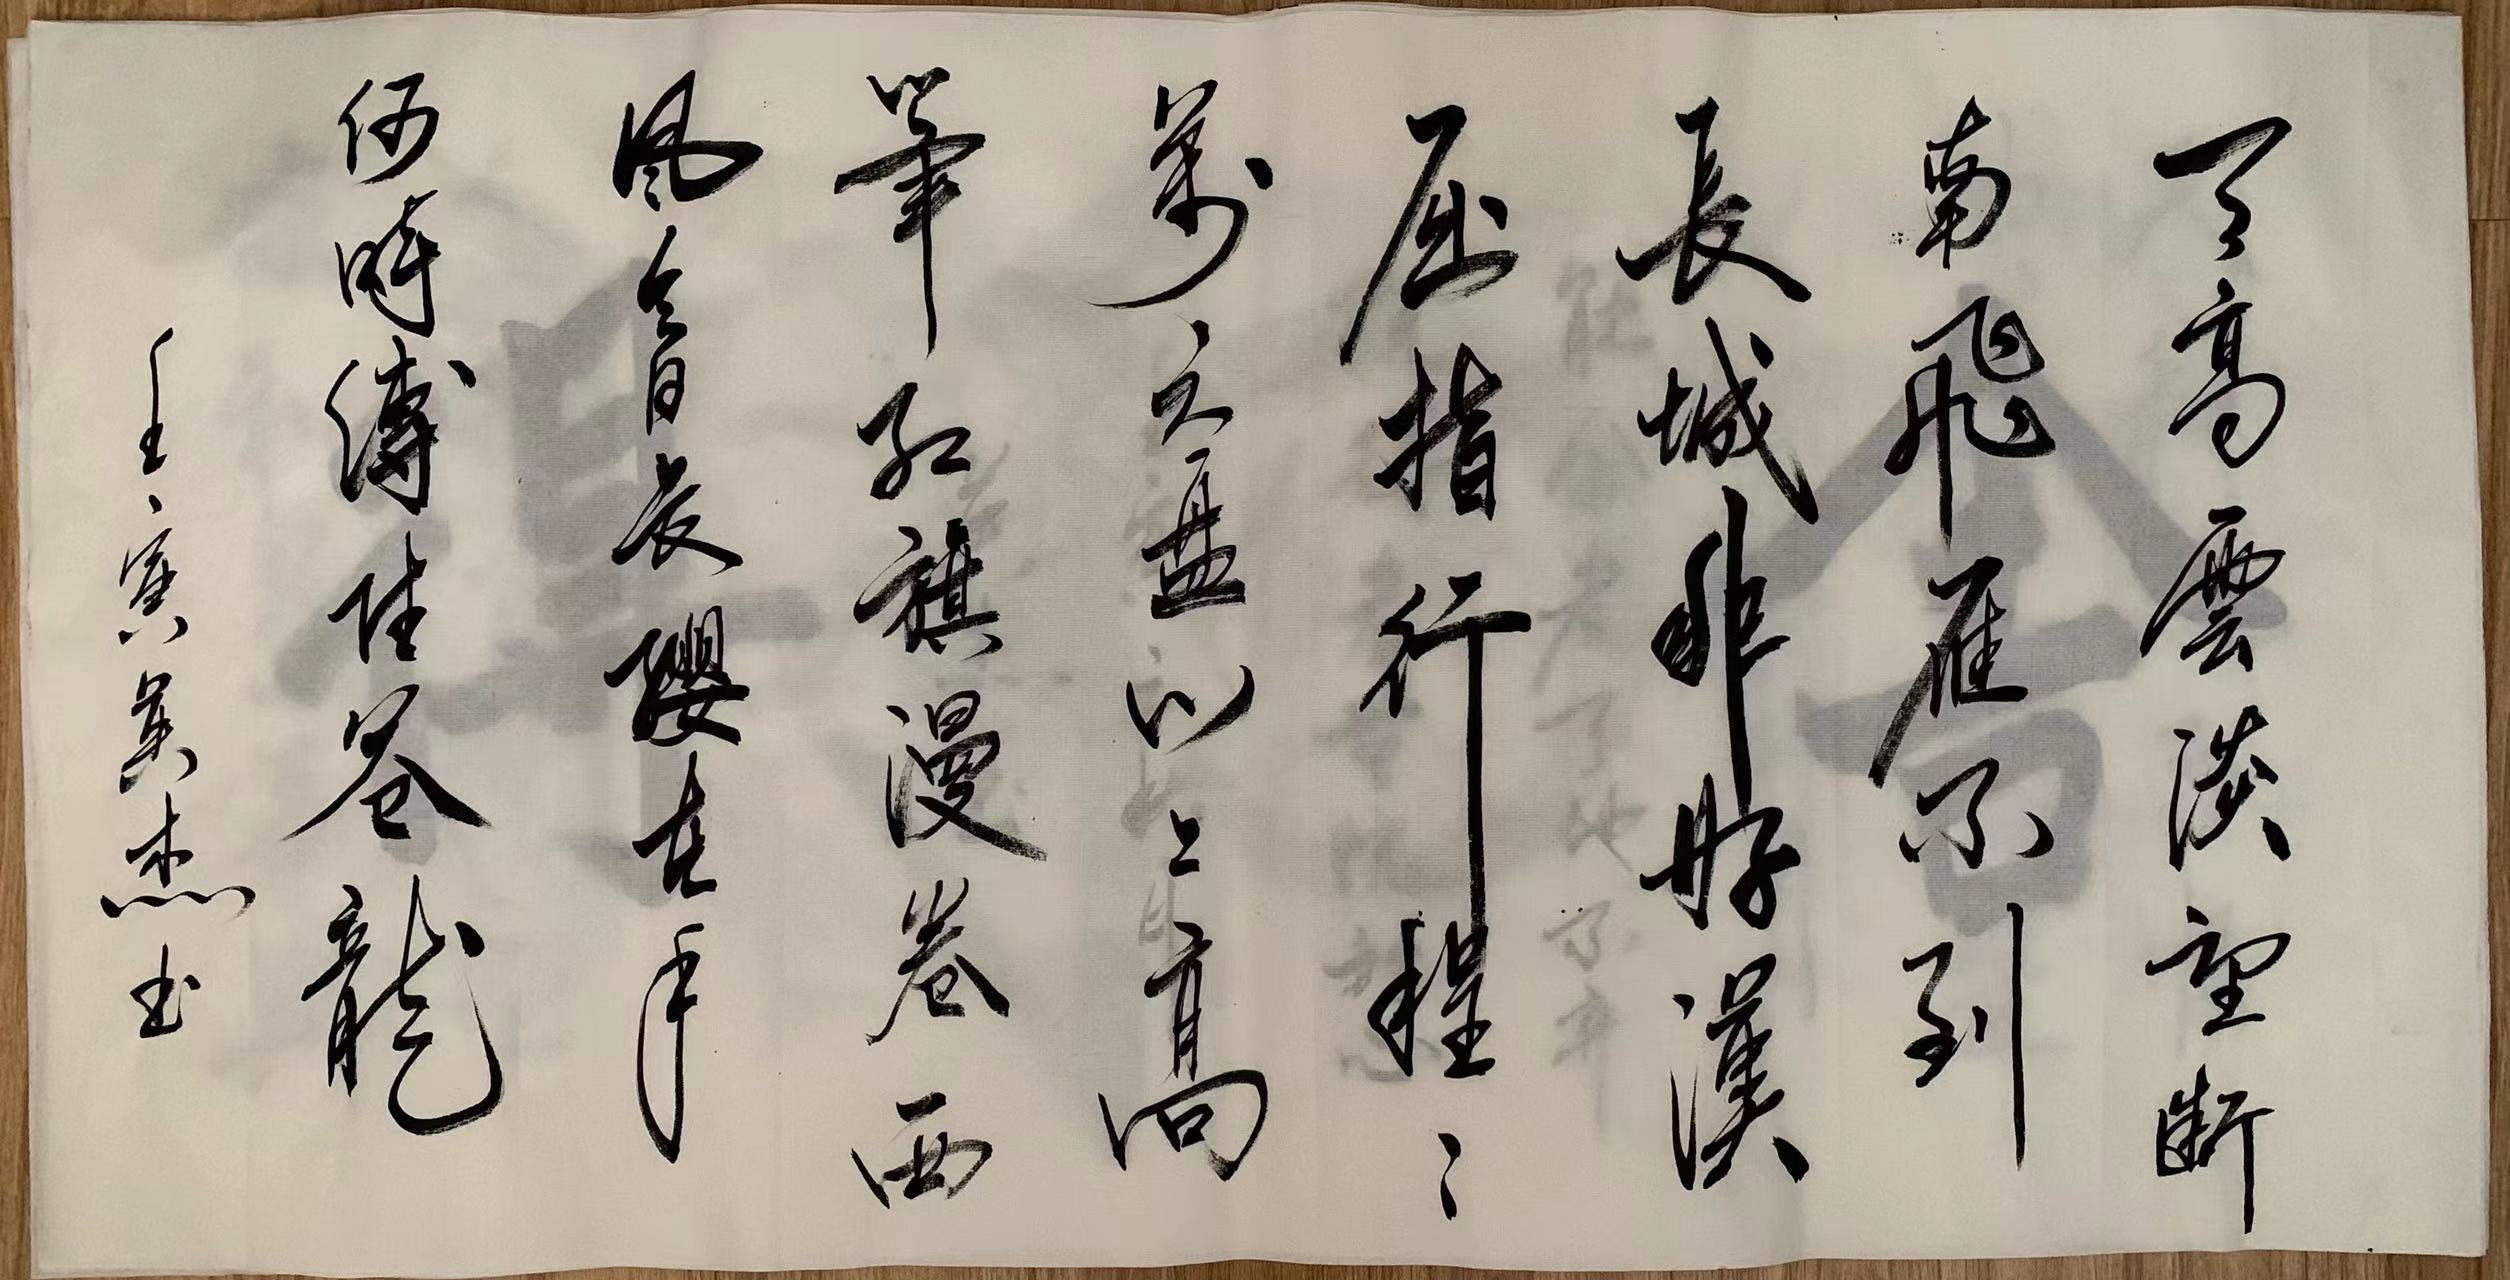 天高雲淡望断
南飛雁不到
長城非好漢
屈指行程二
萬六盤山上高
峯红旗漫卷西
風今日長纓在手
何時縛住蒼龍
壬寅杰书